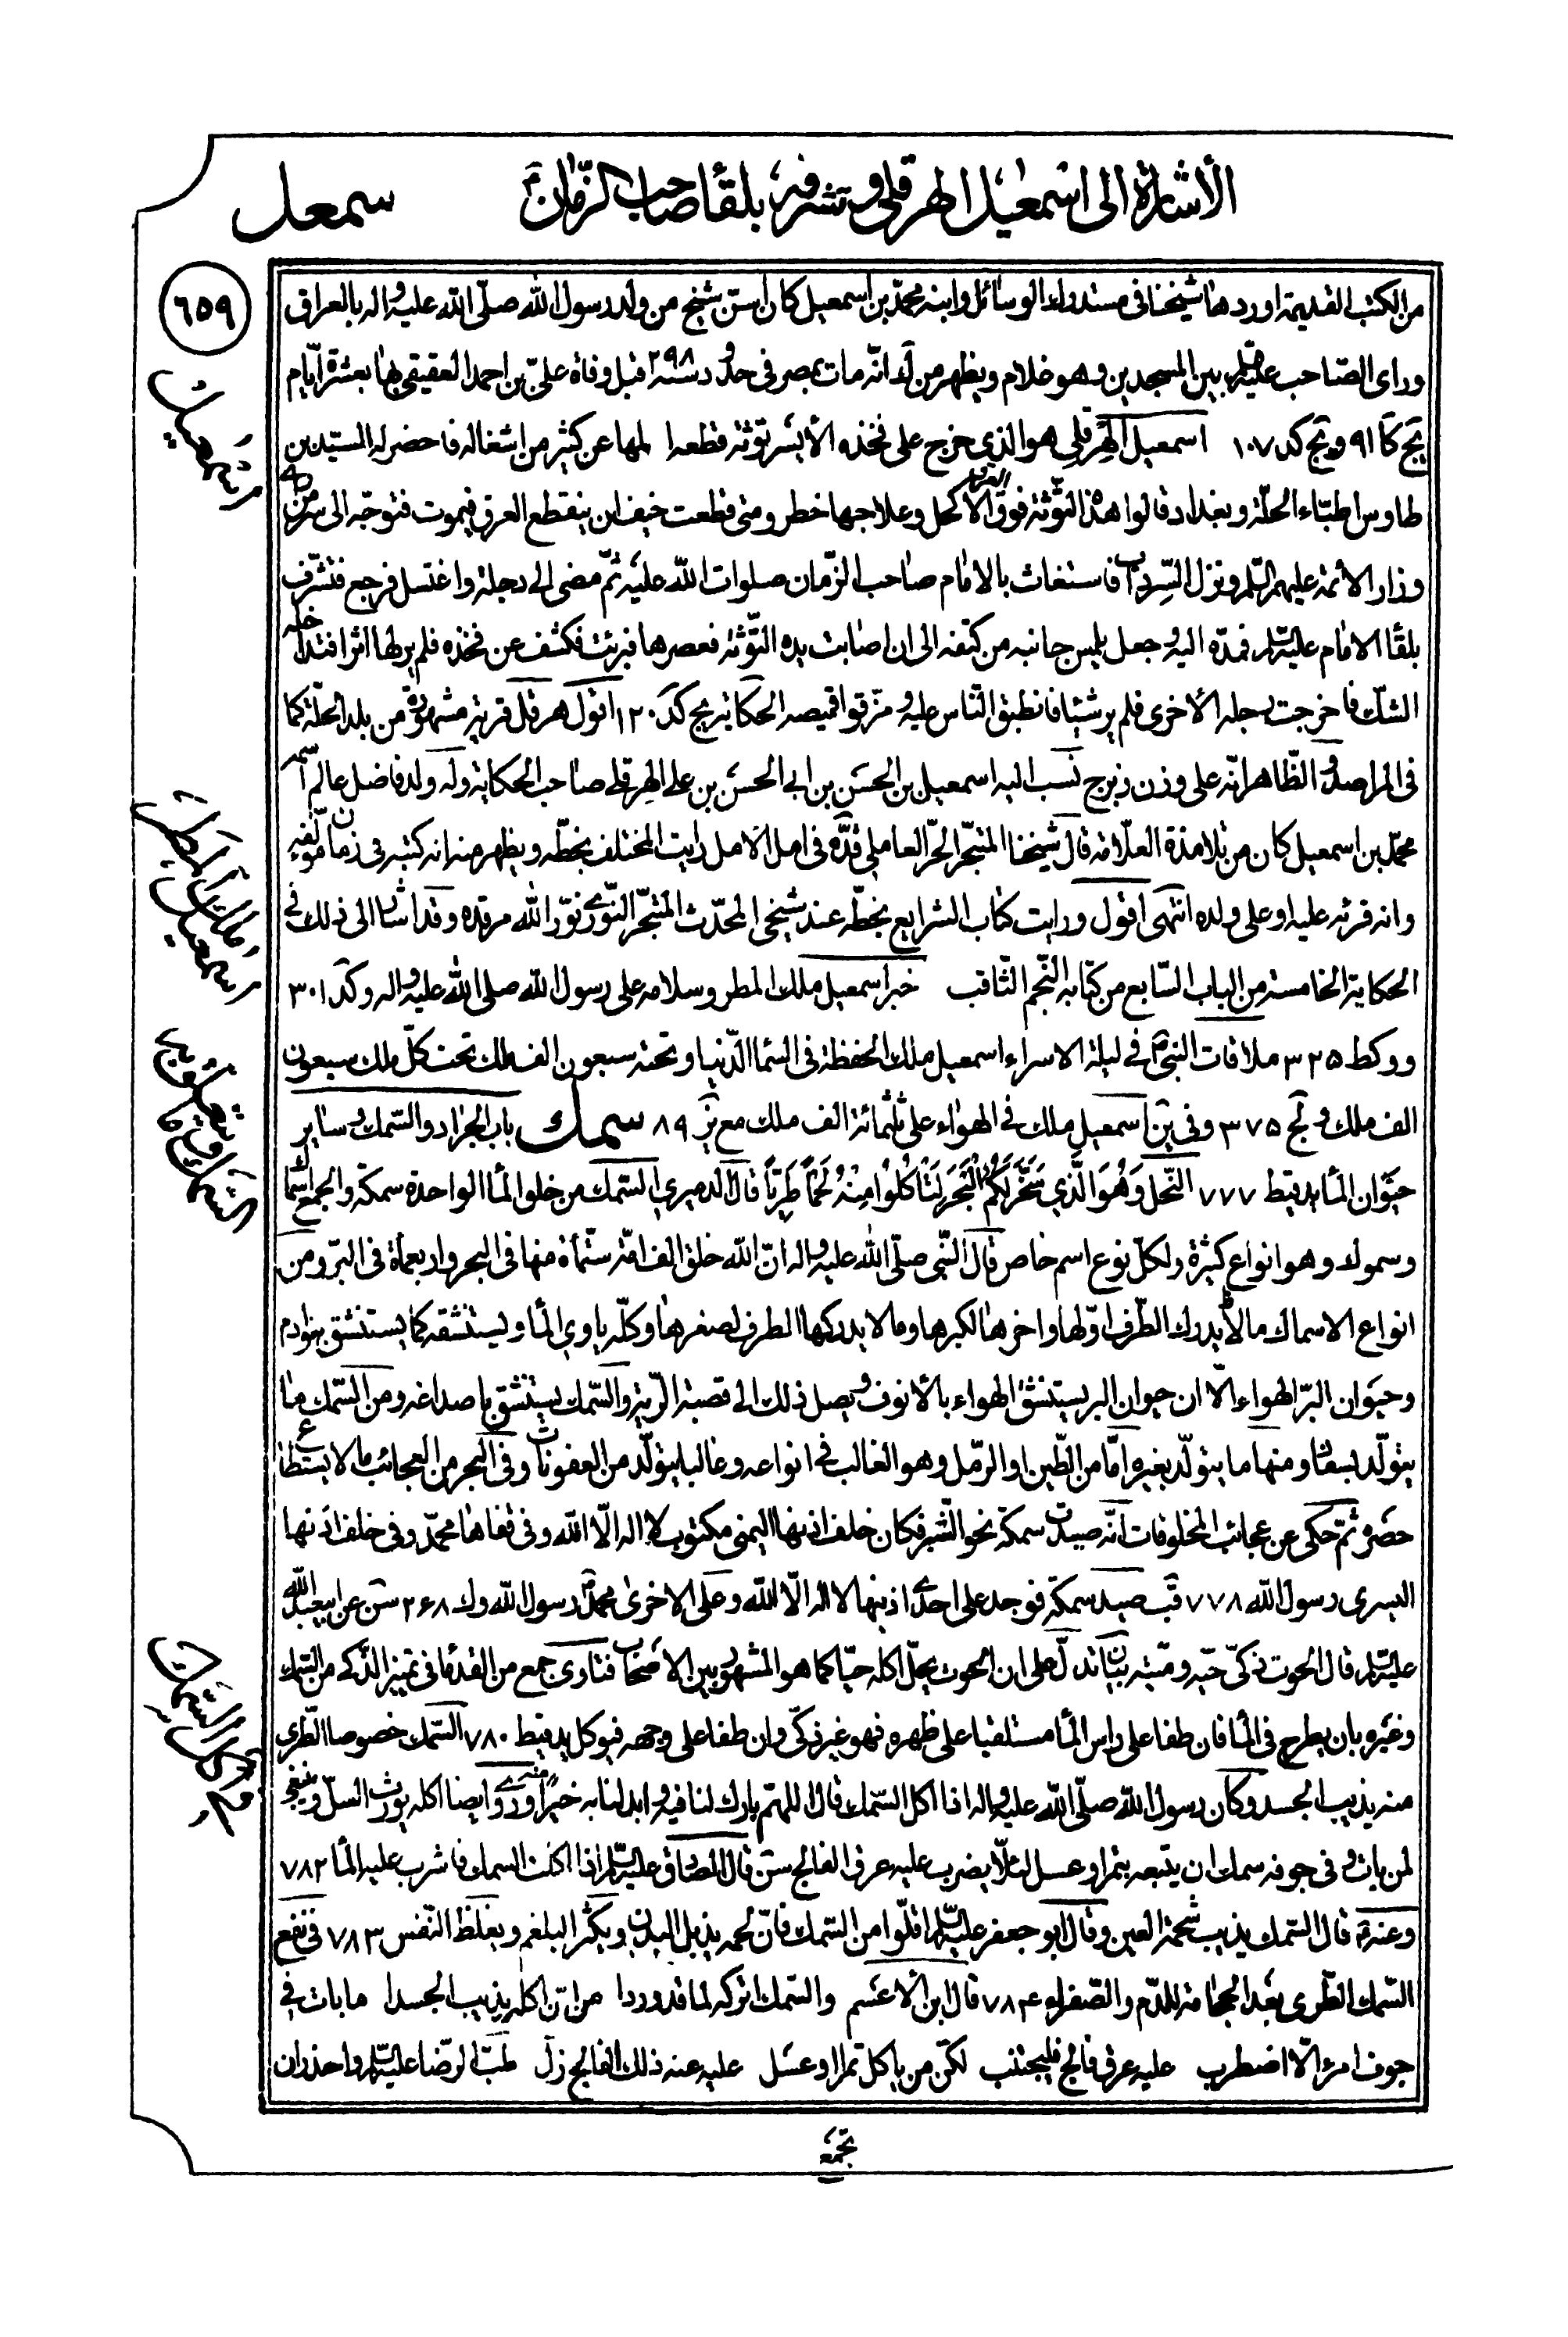 الأشارة الى اسمعيل الهرقلي وتشرفه بلقاء صاحب الزمان ع
سمعل
٦٥٩
من الكتب القديمة اوردها شيخنا فى مستدرك الوسائل وابنه محمّد بن اسمعيل كان اسنّ شيخ من ولد رسول الله صلّى الله عليه واله بالعراق
وراى الصّاحب عليه السلم بين المسجدين وهو غلام ويظهر من انّه مات بمصر فى حدود سنة ٢٩٨ قبل وفاة علىّ بن احمد العقيقى بها بعشرة ايّام
يج كا ٩١ ويج كد ١٠٧ اسمعيل الهِرَقلي هو الذي خرج على فخذه الأيسر توثة قطعه المها عن كثير من اشغاله فاحضر له السيّد بن
طاوس اطبّاء الحلّة وبغداد قالوا هذه التّوثة فوق العرق الاكحل وعلاجها خطر ومتى قطعت خيف ان ينقطع العرق فيموت فتوجّه الى سرّ من راى
وزار الائمة عليهم السّلم ونزل السِّرداب فاستغاث بالامام صاحب الزّمان صلوات الله عليه ثمّ مضى الى دجلة واغتسل فرجع فتشرّف
بلقاء الامام عليه السّلم فمدّه اليه وجعل يلمس جانبه من كتفه الى ان اصابت يده التّوثة فعصرها فبرئت فكشف عن فخذه فلم ير لها اثرا فتداخله
الشكّ فاخرجت رجله الأخرى فلم ير شيئا فانطبق النّاس عليه ومزّقوا قميصه الحكاية يج كد ١٢٠ اقول هرقل قرية مشهورة من بلد الحلّة كما
فى المراصد والظّاهر انّه على وزن زبرج نسب اليه اسمعيل بن الحسن بن ابي الحسن بن علي الهرقلي صاحب الحكاية وله ولد فاضل عالم اسمه
محمّد بن اسمعيل كان من تلامذة العلّامة قال شيخنا المتبحّر الحرّ العاملي قدّه فى امل الامل رايت المختلف بخطّه ويظهر منه انه كتبه فى زمان مؤلّفه
وانه قرئه عليه او على ولده انتهى اقول ورايت كتاب الشرايع بخطّه عند شيخى المحدّث المتبحّر النّوري نوّر الله مرقده وقد اشار الى ذلك فى
الحكاية الخامسة من الباب السّابع من كتابه النّجم الثّاقب خبر اسمعيل ملك المطر وسلامه على رسول الله صلى الله عليه واله وكد ٣٠١
ووكط ٣٢٥ ملاقات النبيّ ص فى ليلة الاسراء اسمعيل ملك الحفظة فى السّماء الدّنيا وتحته سبعون الف ملك تحت كلّ ملك سبعون
الف ملك و لج ٣٧٥ وفى اسمعيل ملك فى الهواء على ثلثمائة الف ملك مع ٨٩ سمك باب الجراد والسّمك وساير
حيوان الماء يد قيط ٧٧٧ النّحل وَهُوَ الَّذِي سَخَّرَ لَكُمُ الْبَحْرَ لِتَأْكُلُوا مِنْهُ لَحْماً طَرِيّاً قال الدميري السّمك من خلق الماء الواحدة سمكة والجمع اسماك
وسموك وهو انواع كثيرة ولكلّ نوع اسم خاص قال النّبى صلّى الله عليه واله انّ الله خلق الف امّة ستّمأة منها فى البحر واربعمأة فى البرّ ومن
انواع الاسماك ما لا يدرك الطّرف اوّلها واخرها لكبرها وما لا يدركها الطرف لصغرها وكلّه ياوي الماء ويستنشقه كما يستنشق بنوادم
وحيوان البرّ الهواء الّا ان حيوان البر يستنشق الهواء بالأنوف ويصل ذلك الى قصبة الرّية والسّمك يستنشق باصداغه ومن السّمك ما
يتولّد بسفاد ومنها ما يتولّد بغيره امّا من الطّين او الرّمل وهو الغالب فى انواعه وغالبا يتولّد من العفونات وفى البحر من العجائب ما لا يستطاع
حصره ثمّ حكى عن عجائب المخلوقات انّه صيدت سمكة نحو الشّبر فكان خلف اذنها اليمنى مكتوب لا اله الّا الله وفى قفاها محمّد وفى خلف اذنها
اليسرى رسول الله ٧٧٨ قب صيد سمكة فوجد على احدى اذنيها لا اله الّا الله وعلى الاخرى محمّد رسول الله وك ٢٦٨ سن عن ابيعبد الله
عليه السّلم قال الحوت ذكىّ حيّه وميّته بيان تدلّ على ان الحوت يحلّ اكله حيّا كما هو المشهور بين الاصحاب فتاوى جمع من القدماء فى تميز الذّكي من السّمك
وغيره بان يطرح فى الماء فان طفا على راس الماء مستلقيا على ظهره فهو غير ذكىّ وان طفا على وجهه فيوكل يد قيط ٧٨٠ السّمك خصوصا الطّرى
منه يذيب الجسد وكان رسول الله صلّى الله عليه واله اذا اكل السّمك قال اللهمّ بارك لنا فيه وابدلنا به خيرًا منه وروى ايضا اكله يورث السلّ وينبغى
لمن بات وفى جوفه سمك ان يتبعه بتمر او عسل لئلّا يضرب عليه عرق الفالج سن قال الصادق عليه السّلم اذا اكلت السمك فاشرب عليه الماء ٧٨٢
وعنه ع قال السّمك يذيب شحمة العين وقال ابو جعفر عليه السّلم اقلّوا من السّمك فانّ لحمه يذبل البدن ويكثر البلغم ويغلظ النّفس ٧٨٣ فى نفع
السّمك الطّرى بعد الحجامة للدّم والصّفراء ٧٨٤ قال ابن الأعسم والسّمك اتركه لما قد وردا من انّ اكله يذيب الجسدا ما بات فى
جوف امرء الّا اضطرب عليه عرق فالج فليجتنب لكنّ من ياكل تمرا او عسل عليه عنه ذلك الفالج زل طب الرّضا عليه السّلم واحذر ان
تجمع